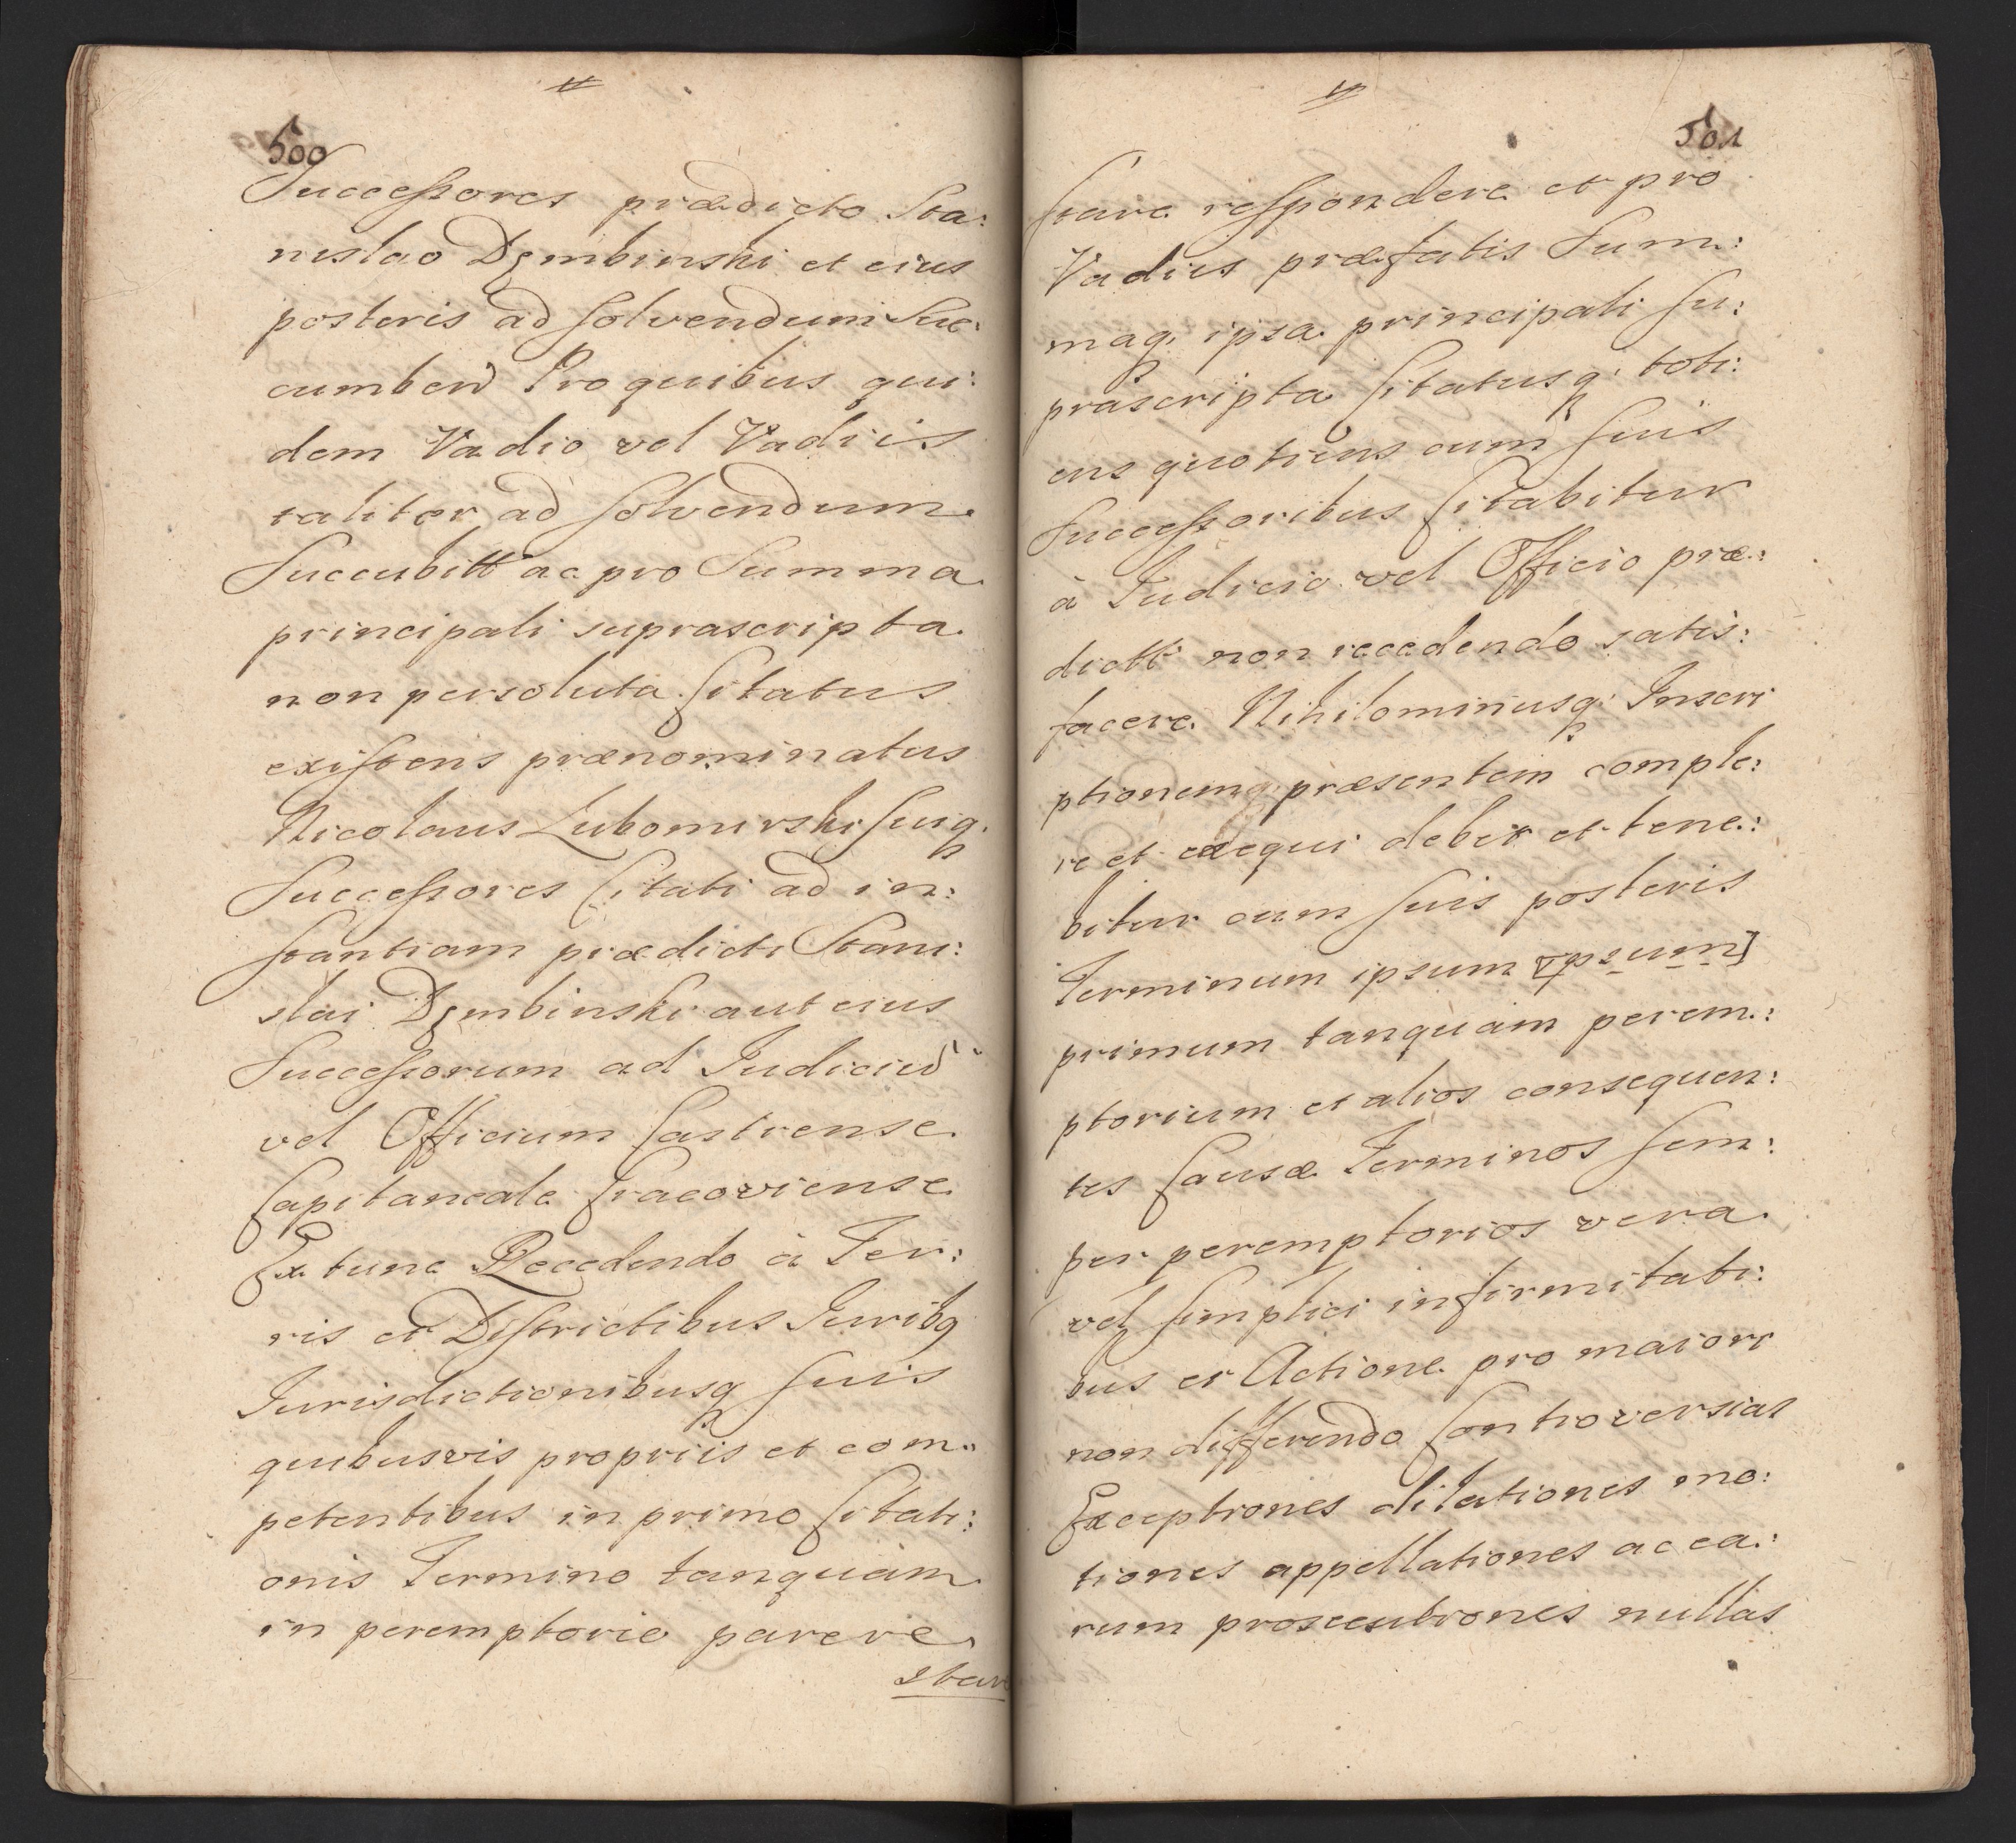 500
Successores prædicto Sta:
nislao Dembinski et eius
posteris ad solvendum Suc:
cumbend Pro quibus qui:
dem Vadio vel Vadiis
taliter ad solvendum
Succubitt ac pro Summa
principali suprascripta
non persoluta Citatus
existens prænominatus
Nicolaus Lubomirski suiq.
Successores Citati ad in:
stantiam prædicti Stani:
slai Dembinski aut eius
Successorum ad Iudiciu
vel Officium Castrense
Capitaneale Cracoviense
Ex tunc Recedendo à Ter:
ris et Districtibus Juribq
Jurisdictionibusq suis
quibusvis propriis et com:
petentibus in primo Citati:
onis Termino tanquam
in peremptorio parere
stare
501
stare respondere et pro
Vadiis præfatis Sum:
maq. ipsa principali su:
prascripta Citatusq. toti:
ens quotiens cum suis
Successoribus Citabitur
à Iudicio vel Officio præ:
dictt non recedendo satis:
facere Nihilominusq. Inscri
ptionemq. præsentem comple:
re et exequi debet et tene:
bitur cum suis posteris
Terminum ipsum [ipsum]
primum tanquam perem:
ptorium et alios consequen:
tes Causæ Terminos sem:
per peremptorios vera
vel simplici infirmitati:
bus et Actione pro maiori
non differendo Controversias
Exceptiones dilationes mo:
tiones appellationes ac ea:
rum prosecutiones nullas